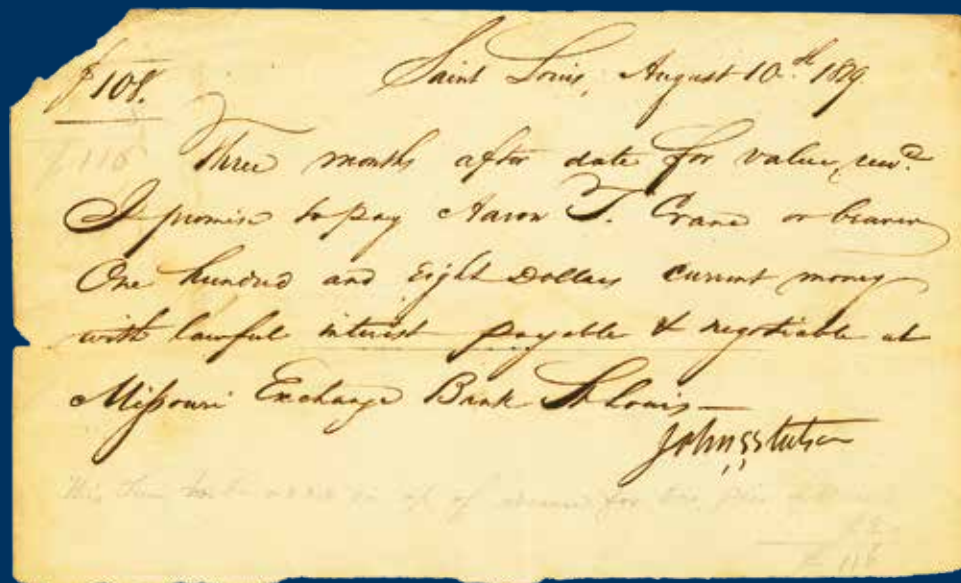 $ 108. Saint Louis, August 10th 1819.
$ 116
Three months after date for value, recd.
I promise to pay Aaron T. Crane or bearer
One hundred and Eight Dollars current money
with lawful interest payable & negotiable at
Missouri Exchange Bank St Louis —
John
for